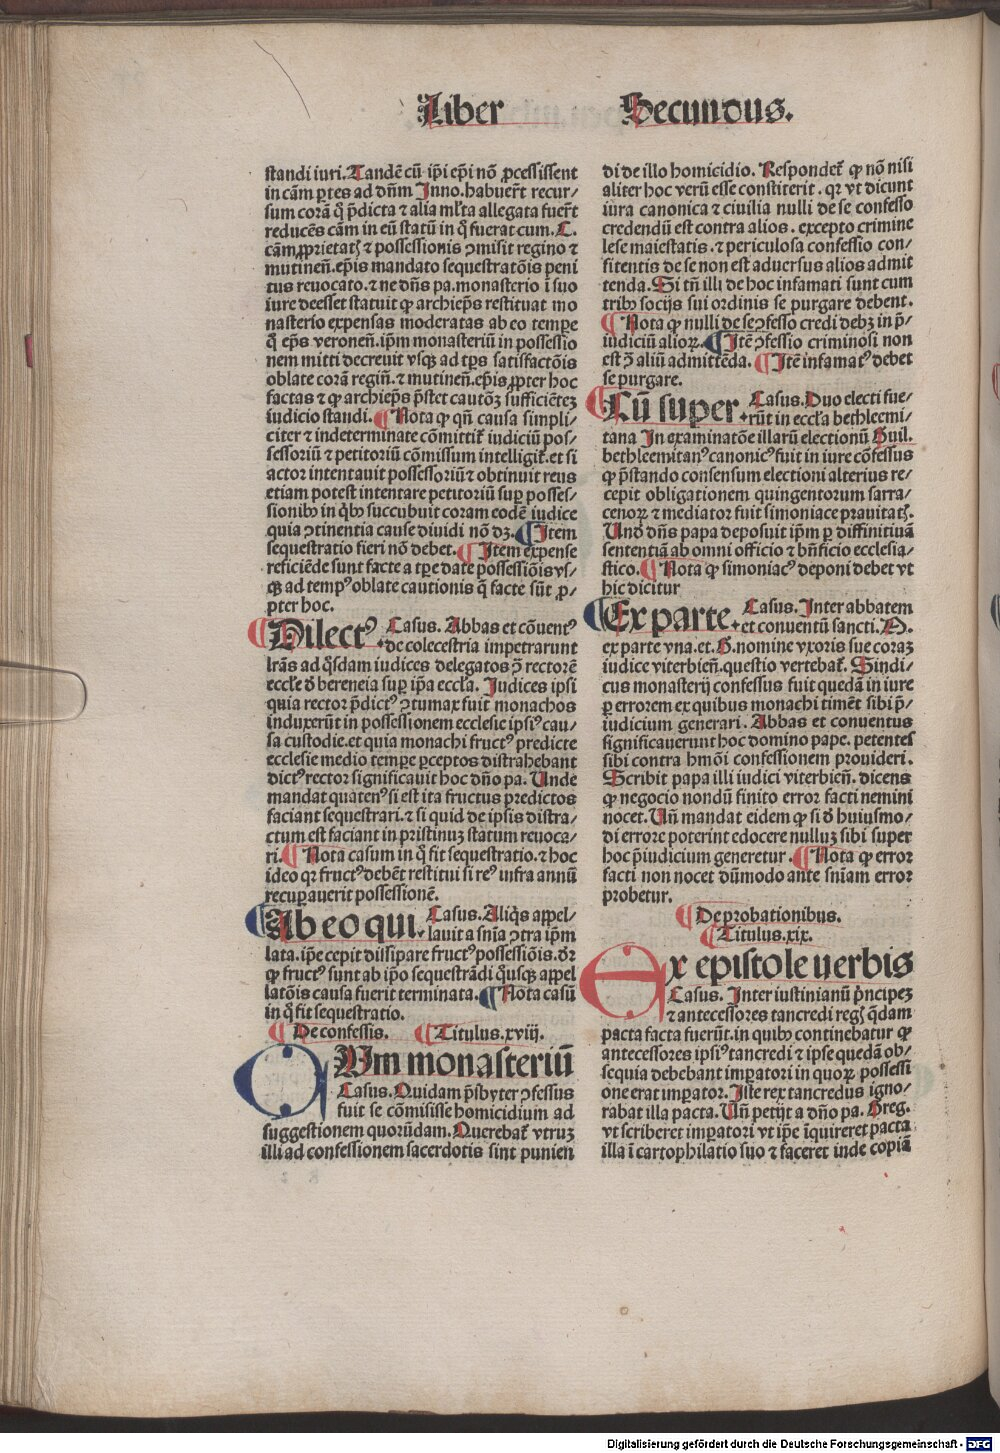 Liber Secundus.
standi iuri. Tandē cū ip̄i ep̄i nō ꝓcessissent
in cām ptes ad dn̄m Inno. habuer̄t recur⸗
sum corā q̄ p̄dicta ⁊ alia ml̄ta allegata fuer̄t
reducēs cām in eū statū in q̄ fuerat cum. C.
cām ꝓprietatꝭ ⁊ possessionis ꝯmisit regino ⁊
mutineñ. ep̄is mandato sequestratōis peni
tus reuocato. ⁊ ne dn̄s pa. monasterio ī suo
iure deesset statuit ꝙ archiep̄s restituat mo
nasterio expensas moderatas ab eo tempe
q̄ ep̄s veroneñ. ip̄m monasteriū in possessio
nem mitti decreuit vsqꝫ ad tp̄s satisfactōis
oblate corā regiñ. ⁊ mutineñ. ep̄is ꝓpter hoc
factas ⁊ ꝙ archiep̄s p̄stet cautōꝫ sufficiēteꝫ
iudicio standi. ¶ Nota ꝙ qn̄ causa simpli⸗
citer ⁊ indeterminate cōmittit᷑ iudiciū pos⸗
sessoriū ⁊ petitoriū cōmissum intelligit᷑. et si
actor intentauit possessoriū ⁊ obtinuit reus
etiam potest intentare petitoriū suꝑ posses⸗
sionibꝰ in q̄bꝰ succubuit coram eodē iudice
quia ꝯtinentia cause diuidi nō dꝫ. ¶ Item
sequestratio fieri nō debet. ¶ Item expense
reficiēde sunt facte a tꝑe date possessiōis vs⸗
qꝫ ad tempꝰ oblate cautionis q̄ facte sūt ꝓ⸗
pter hoc.
¶ Dilectꝰ. Casus. Abbas et cōuentꝰ
de colecestria impetrarunt
lr̄as ad q̄sdam iudices delegatos ꝯ̄ rectorē
eccl̄e d̄ bereneia suꝑ ip̄a eccl̄a. Judices ipsi
quia rector p̄dictꝰ ꝯtumax fuit monachos
induxerūt in possessionem ecclesie ipsiꝰ cau⸗
sa custodie. et quia monachi fructꝰ predicte
ecclesie medio tempe ꝑceptos distrahebant
dictꝰ rector significauit hoc dn̄o pa. Unde
mandat quatenꝰ si est ita fructus predictos
faciant sequestrari. ⁊ si quid de ipsis distra⸗
ctum est faciant in pristinuꝫ statum reuoca⸗
ri. ¶ Nota casum in q̄ fit sequestratio. ⁊ hoc
ideo qꝛ fructꝰ debēt restitui si reꝰ infra annū
recuꝑauerit possessionē.
¶ Ab eo qui. Casus. Aliq̄s appel⸗
lauit a sn̄ia ꝯtra ip̄m
lata. ip̄e cepit dissipare fructꝰ possessiōis. dr̄
ꝙ fructꝰ sunt ab ip̄o sequestrādi q̄usqꝫ appel
latōis causa fuerit terminata. ¶ Nota casū
in q̄ fit sequestratio.
¶ De confessis. ¶ Titulus. xviij.
CUm monasteriū
Casus. Quidam p̄sbyter ꝯfessus
fuit se cōmisisse homicidium ad
suggestionem quorūdam. Querebat᷑ vtruꝫ
illi ad confessionem sacerdotis sint punien
di de illo homicidio. Respondet᷑ ꝙ nō nisi
aliter hoc verū esse constiterit. qꝛ vt dicunt
iura canonica ⁊ ciuilia nulli de se confesso
credendū est contra alios. excepto crimine
lese maiestatis. ⁊ periculosa confessio con⸗
fitentis de se non est aduersus alios admit
tenda. Si tn̄ illi de hoc infamati sunt cum
tribꝰ socijs sui ordinis se purgare debent.
¶ Nota ꝙ nulli de se ꝯfesso credi debꝫ in p̄⸗
iudiciū alioꝝ. ¶ Itē ꝯfessio criminosi non
est ꝯ̄ aliū admittēda. ¶ Itē infamatꝰ debet
se purgare.
¶ Cū super. Casus. Duo electi fue⸗
rūt in eccl̄a bethleemi⸗
tana In examinatōe illarū electionū Guil.
bethleemitanꝰ canonicꝰ fuit in iure cōfessus
ꝙ p̄stando consensum electioni alterius re⸗
cepit obligationem quingentorum sarra⸗
cenoꝝ ⁊ mediator fuit simoniace prauitatꝭ.
Unde dn̄s papa deposuit ip̄m ꝑ diffinitiuā
sententiā ab omni officio ⁊ bn̄ficio ecclesia⸗
stico. ¶ Nota ꝙ simoniacꝰ deponi debet vt
hic dicitur
¶ Ex parte. Casus. Inter abbatem
et conuentū sancti. M.
ex parte vna. et. G. nomine vxoris sue coraꝫ
iudice viterbieñ. questio vertebat᷑. Sindi⸗
cus monasterij confessus fuit quedā in iure
ꝑ errorem ex quibus monachi timēt sibi p̄⸗
iudicium generari. Abbas et conuentus
significauerunt hoc domino pape. petentes
sibi contra hmōi confessionem prouideri.
Scribit papa illi iudici viterbieñ. dicens
ꝙ negocio nondū finito error facti nemini
nocet. Un̄ mandat eidem ꝙ si d̄ huiusmo⸗
di errore poterint edocere nulluꝫ sibi super
hoc p̄iudicium generetur. ¶ Nota ꝙ error
facti non nocet dūmodo ante sn̄iam error
probetur.
¶ De probationibus.
¶ Titulus. xix.
Ex epistole uerbis
Casus. Inter iustinianū p̄ncipeꝫ
⁊ antecessores tancredi regꝭ q̄dam
pacta facta fuerūt. in quibꝰ continebatur ꝙ
antecessores ipsiꝰ tancredi ⁊ ipse quedā ob⸗
sequia debebant imꝑatori in quoꝝ possessi
one erat imꝑator. Iste rex tancredus igno⸗
rabat illa pacta. Un̄ petijt a dn̄o pa. Greg.
vt scriberet imꝑatori vt ip̄e īquireret pacta
illa ī cartophilatio suo ⁊ faceret inde copiā
Digitalisierung gefördert durch die Deutsche Forschungsgemeinschaft - DFG